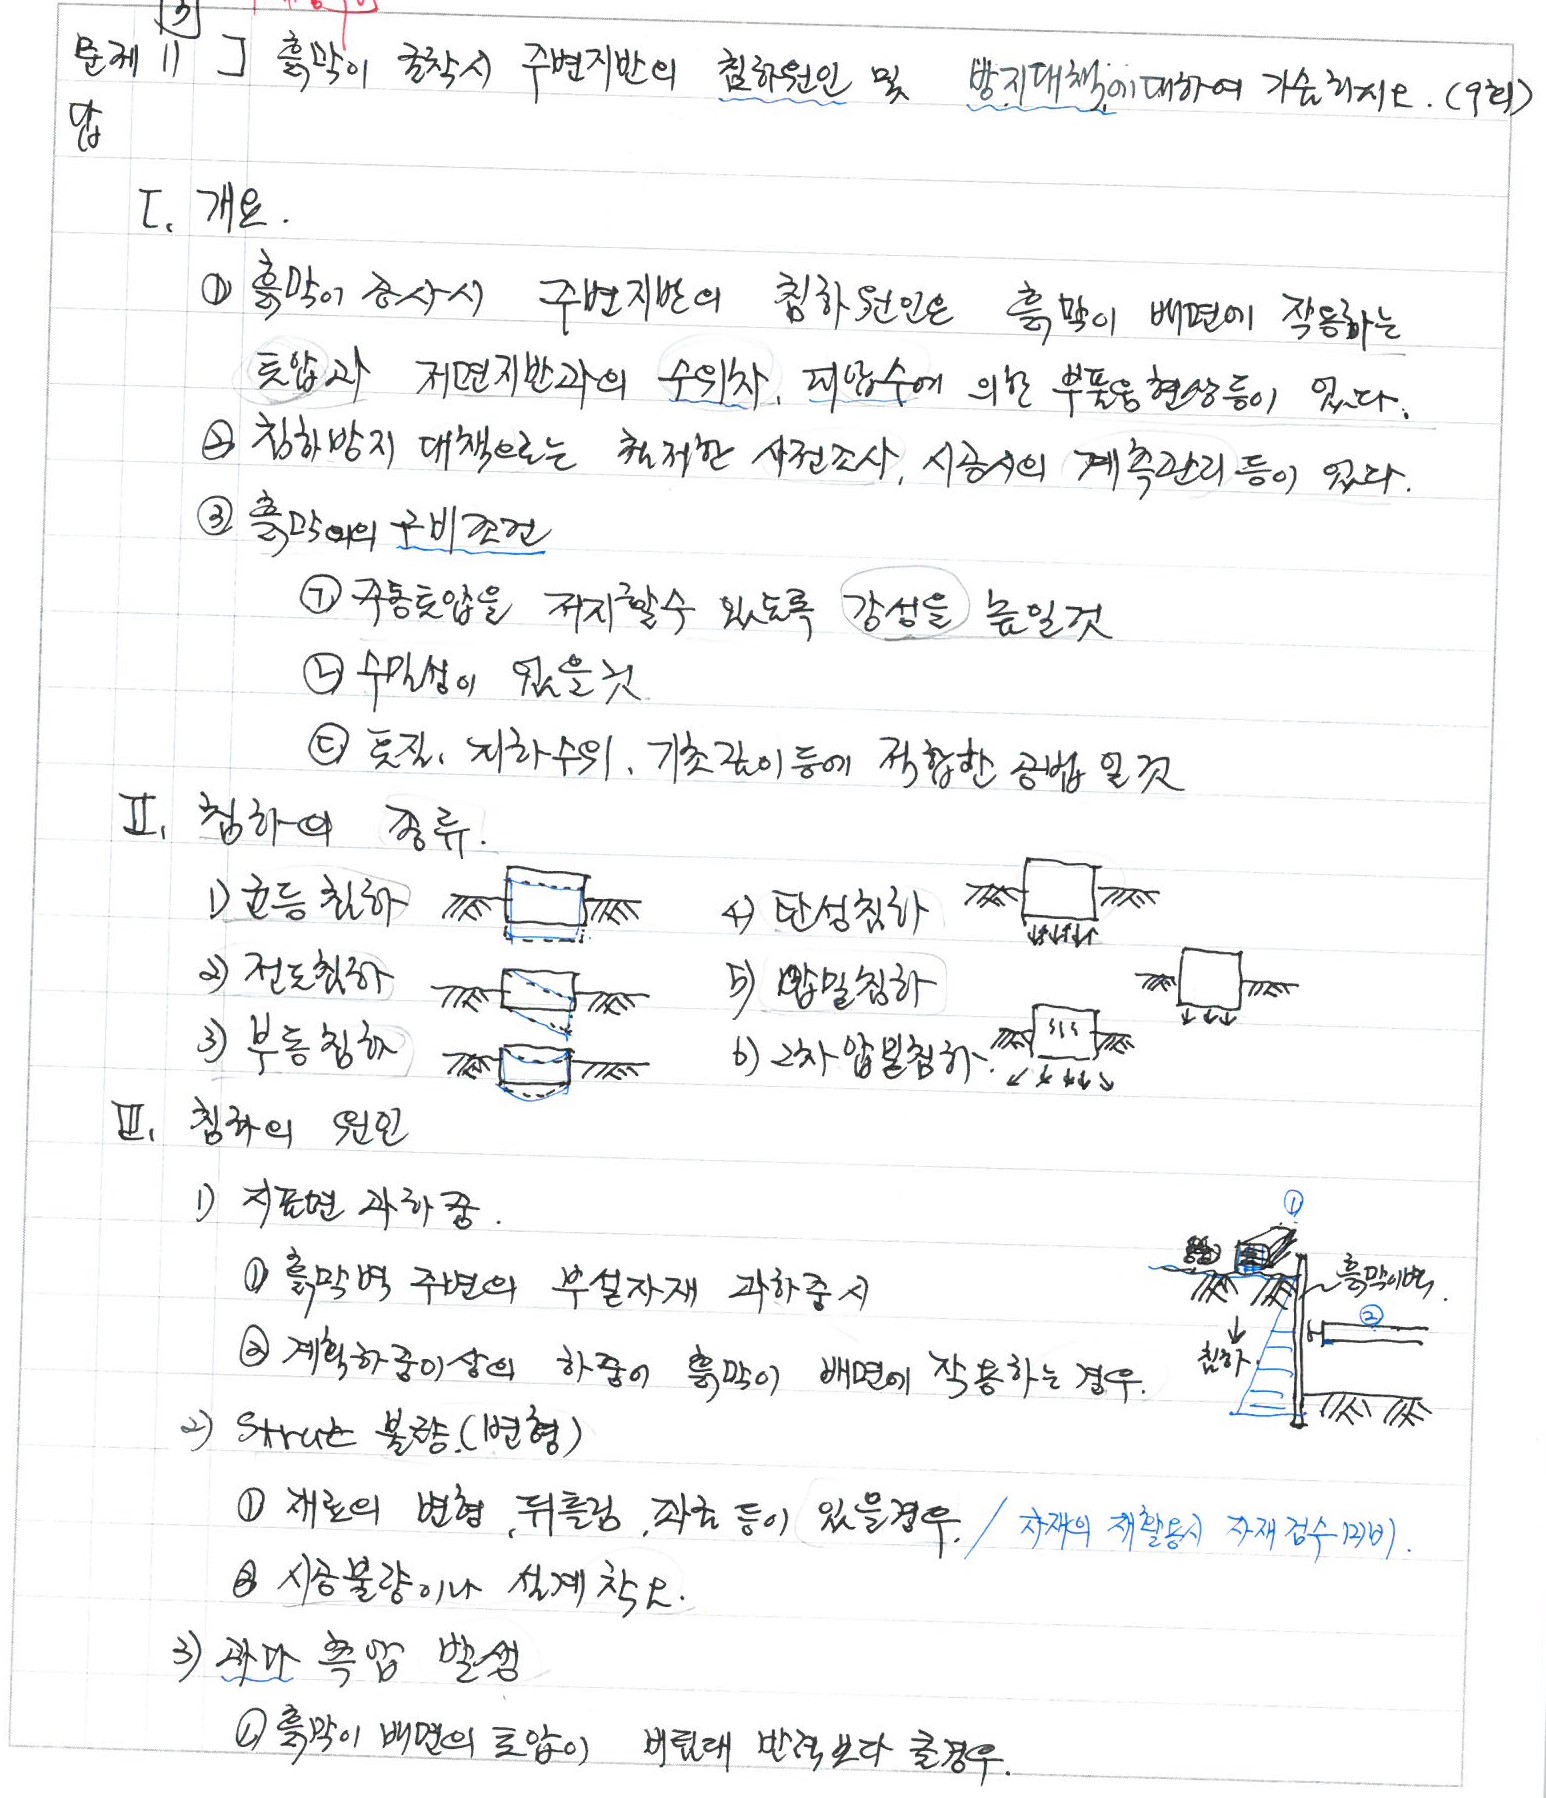 문제 11 ] 흙막이 굴착시 주변지반의 침하원인 및 방지대책에 대하여 기술하시오. (9회)
답
I. 개요.
① 흙막이 공사시 주변지반의 침하원인은 흙막이 배면에 작용하는
토압과 저면지반과의 수위차, 피압수에 의한 부풀음 현상 등이 있다.
② 침하방지 대책으로는 철저한 사전조사, 시공시의 계측관리 등이 있다.
③ 흙막이의 구비조건
㉠ 주동토압을 저지할수 있도록 강성을 높일것
㉡ 수밀성이 있을것
㉢ 토질, 지하수위, 기초깊이 등에 적합한 공법 일것
II. 침하의 종류.
1) 균등침하
4) 탄성침하
2) 전도침하
5) 압밀침하
3) 부등침하
6) 2차 압밀침하.
III. 침하의 원인
1) 지표면 과하중.
① 흙막벽 주변의 부설자재 과하중시
② 계획하중이상의 하중이 흙막이 배면에 작용하는 경우.
①
흙막이벽.
②
침하.
2) Strut 불량.(변형)
① 재료의 변형, 뒤틀림, 좌굴 등이 있을경우. / 자재의 재활용시 자재검수 미비.
② 시공불량이나 설계착오.
3) 과다 측압 발생
① 흙막이 배면의 토압이 버팀대 반력보다 클경우.